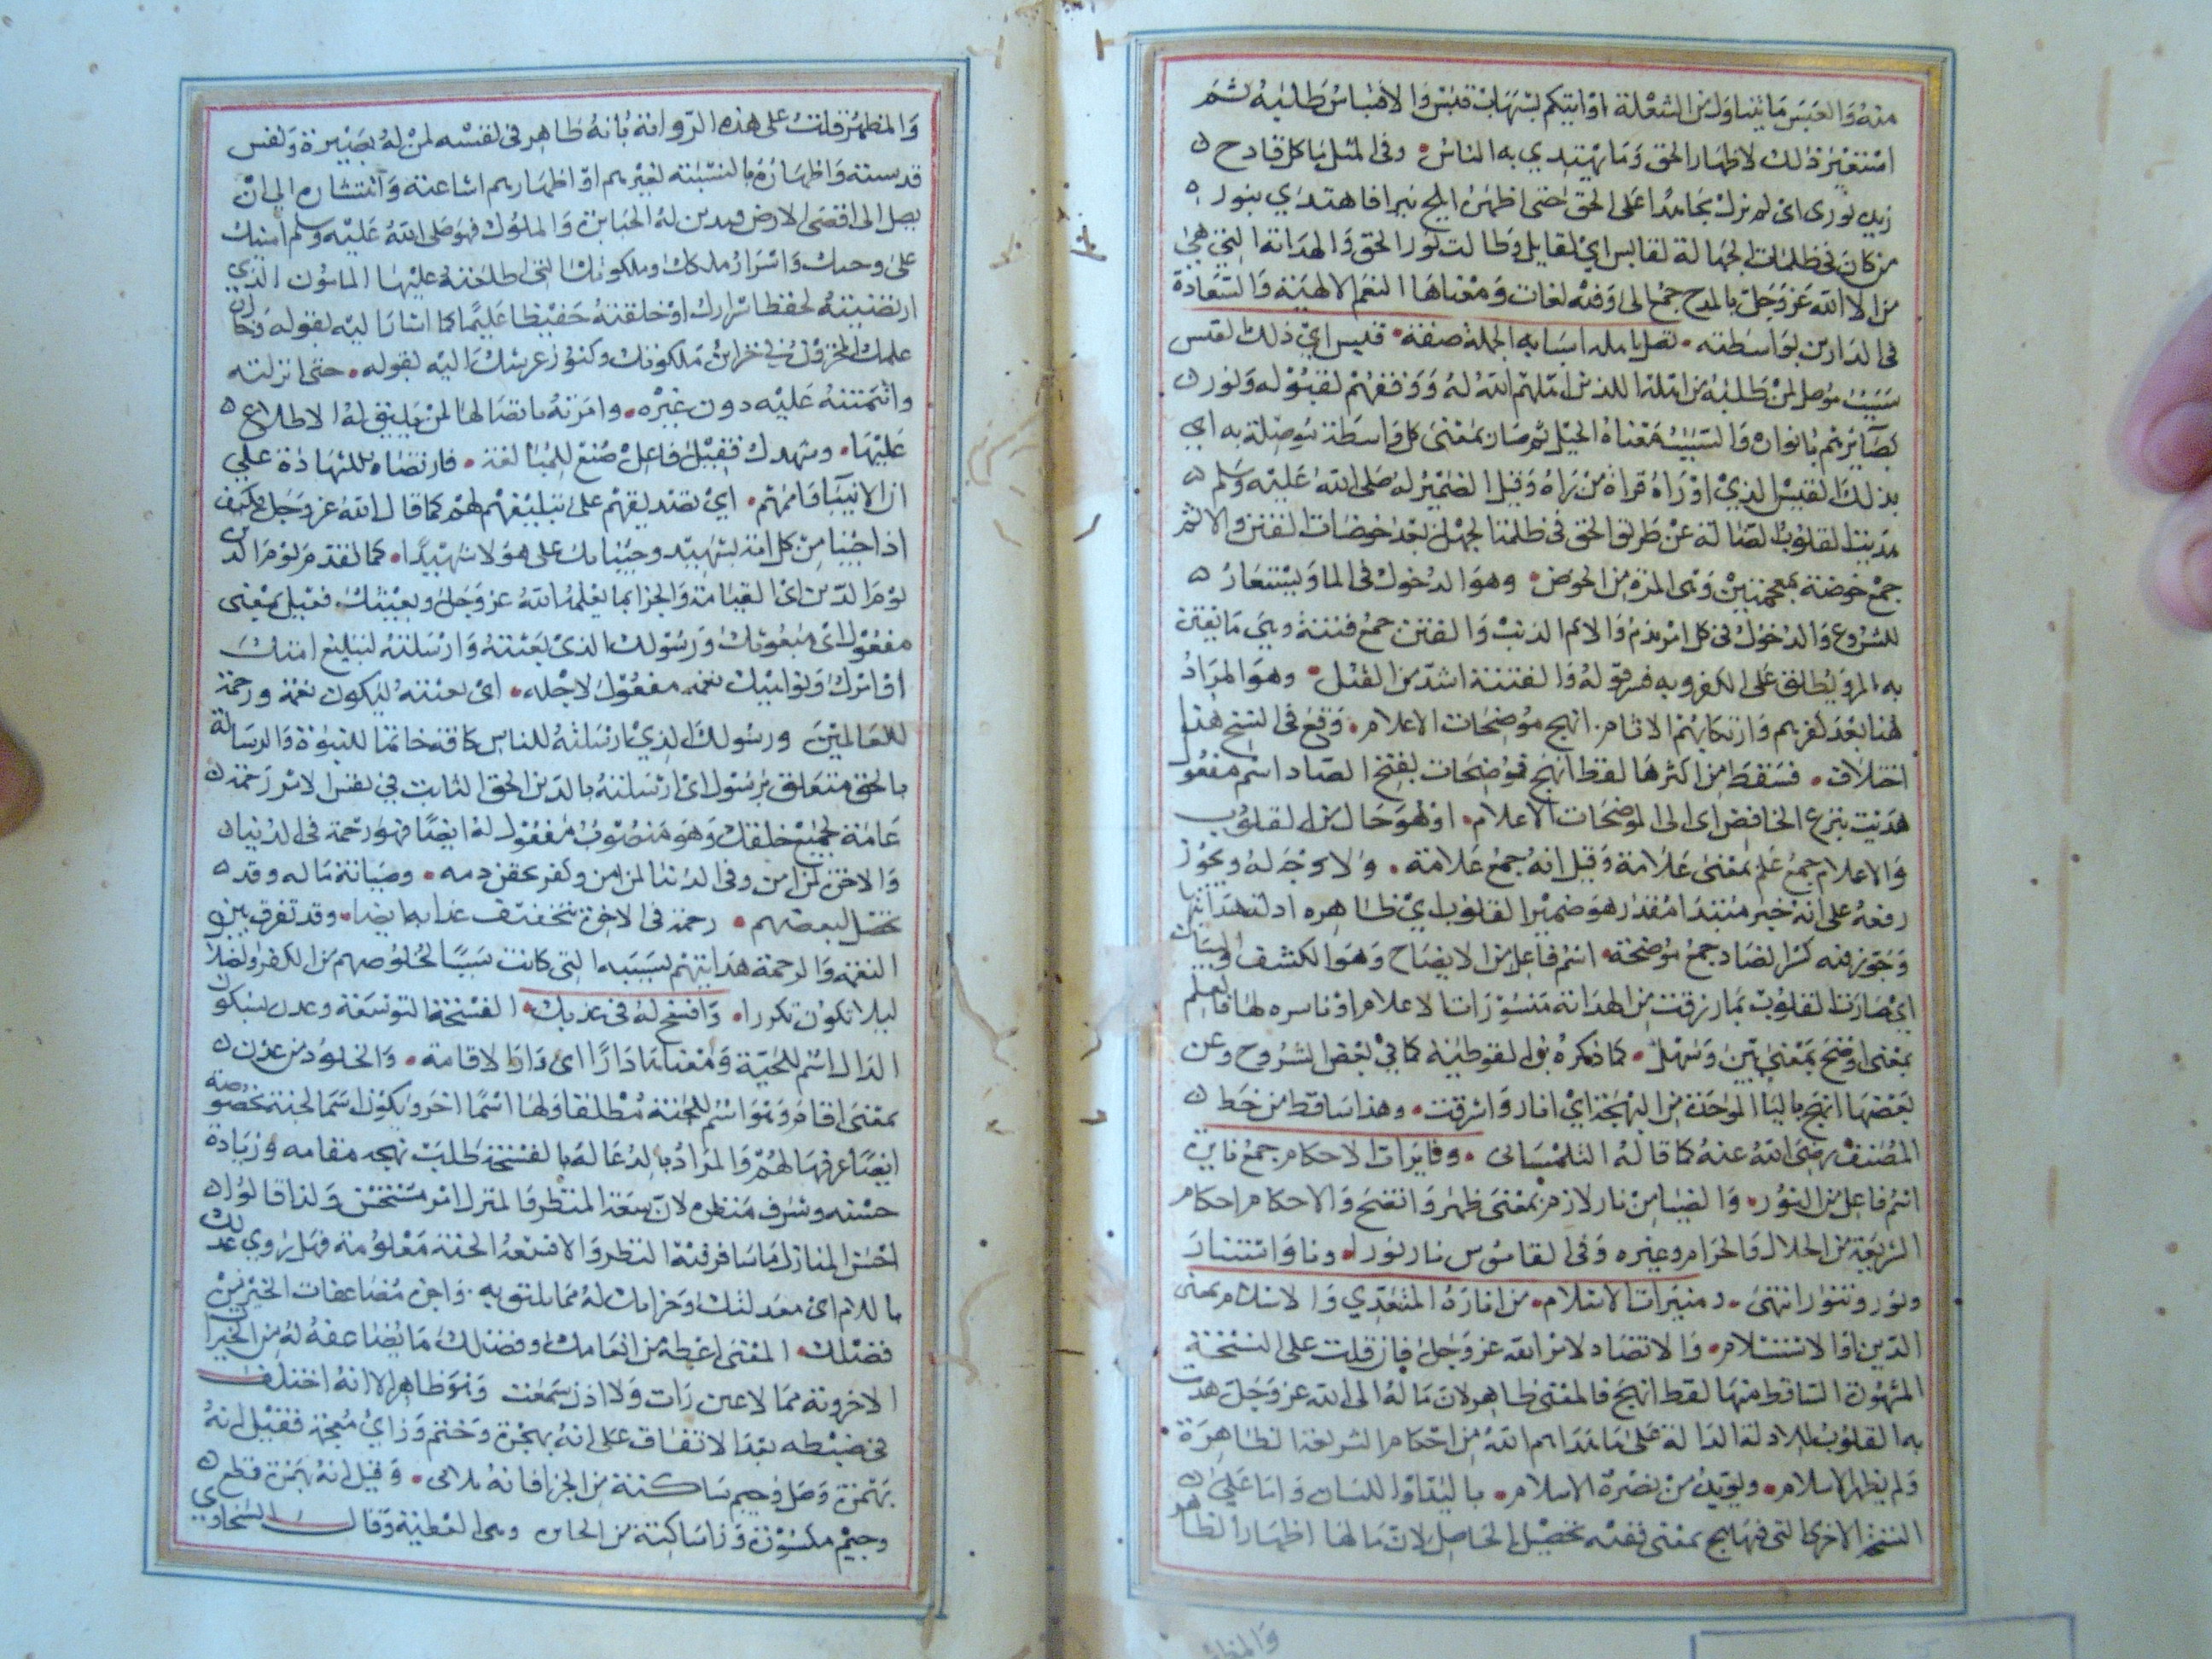 منه والقبس ما يتناول من الشعلة او اتيكم بشهاب قبس والاقتباس طلبه ثم
استعير ذلك لاظهار الحق وما يهتدي به الناس وفى المثل ما كل قادح
زنده يورى اى لم يزل مجاهدا على الحق حتى اظهر
من كان فى ظلمات الجهالة لقابس اي لقابل وطالب نور الحق والهداية التي هي
من الا الله عز وجل بالمدح جمع الى وفيه لغات ومعناها النعم الالهية والسعادة
فى الدارين بواسطته تصل باهله اسبابه الجملة صفة قبس اي ذلك القبس
سبب موصل لمن طلبه من اهله الذين الهمهم الله له ووفقهم لقبوله ونور
بصائرهم بانواره والسبب معناه الحبل ثم صار بمعنى كل واسطة يتوصل به اي
بذلك القبس الذي اوراه قراة من يراه وقيل الضمير له صلى الله عليه وسلم
هديت القلوب الضالة عن طريق الحق فى ظلمة الجهل بعد خوضات الفتن والاثم
جمع خوضة بمعجمتين وهى المرة من الخوض وهو الدخول فى الما ويستعار
للشروع والدخول فى كل امر يذم والاثم الذنب والفتن جمع فتنة وهي ما يفتتن
به المر ويطلق على الكفر وبه فسر قوله والفتنة اشد من القتل وهو المراد
هنا بعد كفرهم وارتكابهم الاثام انهج موضحات الاعلام وقع فى النسخ هنا
اختلاف فسقط من اكثرها لفظ انهج فموضحات بفتح الضاد اسم مفعول
هديت بنزع الخافض اى الى موضحات الاعلام او هو حال من القلوب
والاعلام جمع علم بمعنى علامة وقيل انه جمع علامة ولا وجه له ويجوز
رفعه على انه خبر مبتدا مقدر هو ضمير القلوب اي ظاهره ادلة هدايتها
وجوز فيه كسر الضاد جمع موضحة اسم فاعل من الايضاح وهو الكشف والبيان
اي صارت القلوب بما رزقت من الهداية الاعلام
بمعنى اوضح بمعنى بين وسهل كما ذكره بن القوطية كما في بعض الشروح وعن
بعضها ابهج باليا الموحدة من البهجة اي انار واشرقت وهذا ساقط من خط
المصنف رضى الله عنه كما قاله التلمسانى وفايرات الاحكام جمع نايرة
اسم فاعل من النور والضيا من نار لازم بمعنى ظهر واتضح والاحكام احكام
الشريعة من الحلال والحرام وغيره وفى القاموس نار نورا وانار واستنار
ونور وتنور انتهى ومنيرات الاسلام من اناره المتعدي والاسلام بمعنى
الدين او الاستسلام والانقياد لامر الله عز وجل فان قلت على النسخة
المشهورة الساقط منها لفظ انهج فالمعنى ظاهر لان ماله الى الله عز وجل هدت
به القلوب للادلة الدالة على ما هداهم الله من احكام الشريعة الظاهرة
ولم يظهر الاسلام ويويد من نصرة الاسلام باليد او اللسان واما على
النسخ الاخرى التى فيها ابهج بمعنى ففيه تحصيل الحاصل لان مالها اظهار الظاهر
والمظهر قلت على هذه الرواية بانه ظاهر فى نفسه لمن له بصيرة ونفس
قدسية واظهاره بالنسبة لغيرهم او اظهارهم اشاعته وانتشاره الى ان
يصل الى اقصى الارض ويدين له الجبابرة والملوك فهو صلى الله عليه وسلم امينك
على وحيك واسرار ملكك وملكوتك التى اطلعته عليها المامون الذي
ارتضيته لحفظ اسرارك او خلقته حفيظا عليما كما اشار اليه بقوله وخازن
علمك المخزون في خزاين ملكوتك وكنوز عرشك اليه بقوله حتى انزلته
وائتمنته عليه دون غيره وامرته بايصالها لمن يليق له الاطلاع
عليها وشهيدك فعيل فاعل صنع للمبالغة فارتضاه للشهادة علي
ان الانبيا واممهم اي تصديقهم على تبليغهم لهم كما قال الله عز وجل فكيف
اذا جئنا من كل امة بشهيد وجئنا بك على هولا شهيدا كما تقدم يوم الدين
يوم الدين اى القيامة والجزا بما يعلمه الله عز وجل وبعيثك فعيل بمعنى
مفعول اى مبعوثك ورسولك الذي بعثته وارسلته لتبليغ امتك
اوامرك ونواهيك نعمة مفعول لاجله اى بعثته ليكون نعمة ورحمة
للعالمين ورسولك الذي ارسلته للناس كافة خاتما للنبوة والرسالة
بالحق متعلق برسول اى ارسلته بالدين الحق الثابت في نفس الامر رحمة
عامة لجميع خلقك وهو منصوب مفعول له ايضا فهو رحمة فى الدنيا
والاخرة لمن امن وفى الدنيا لمن امن وكفر بحقن دمه وصيانة ماله وقد
تحصل لبعضهم رحمة فى الاخرة بتخفيف عذابه ايضا وقد تفرق بين
النعمة والرحمة هدايتهم بسببه التى كانت سببا لخلوصهم من الكفر والضلال
ليلا تكون تكرارا وافسح له فى عدنك الفسحة التوسعة وعدن بسكون
الدال اسم للجنة ومعناها دارا اى دار الاقامة والخلود من عدن
بمعنى اقام وهو اسم للجنة مطلقا ولها اسما اخر ويكون اسما لجنة مخصوصة
ايضا عرفها لهم والمراد بالدعا له بالفسحة طلب بهجة مقامه وزيادة
حسنه وشرف منظره لان سعة المنظر والمنزل امر مستحسن ولذا قالوا
احسن المنازل ما سافر فيه النظر والافسعة الجنة معلومة فهل روى عدلك
باللام اى معدلتك وجزايك له مما يليق به واجزه مضاعفات الخير من
فضلك المعنى اعطه من انعامك وفضلك ما يضاعفه له من الخيرات
الاخروية مما لا عين رات ولا اذن سمعت وهو ظاهر الا انه اختلف
فى ضبطه بعد الاتفاق على انه بهمزة وجيم وزاي معجمة فقيل انه
بهمزة وصل وجيم ساكنة من الجزا فانه ثلاثى وقيل انه بهمزة قطع
وجيم مكسورة وزا ساكنة من الجايزه وهى العطية وقال السخاوي